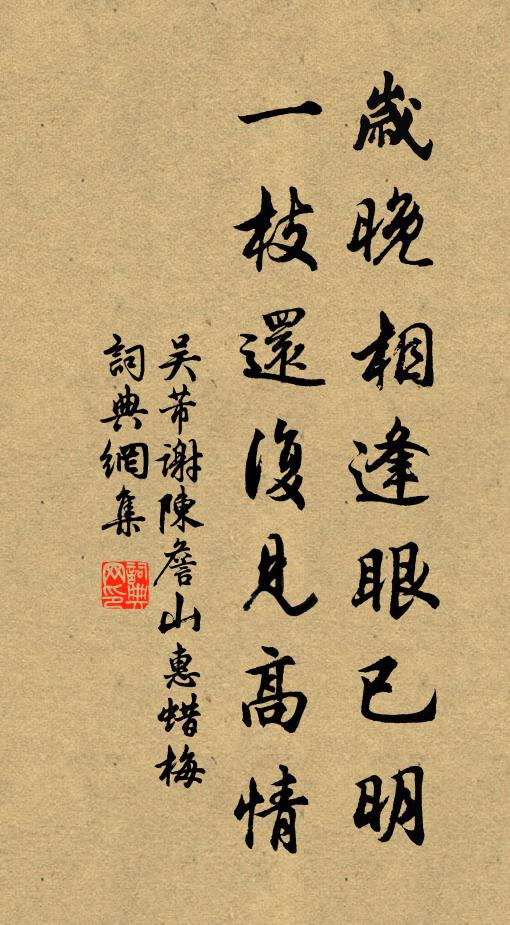 歲晚相逢眼已明
一枝還復見高情
吴芾謝陳詹山惠蜡梅
詞典網集
詞典网印